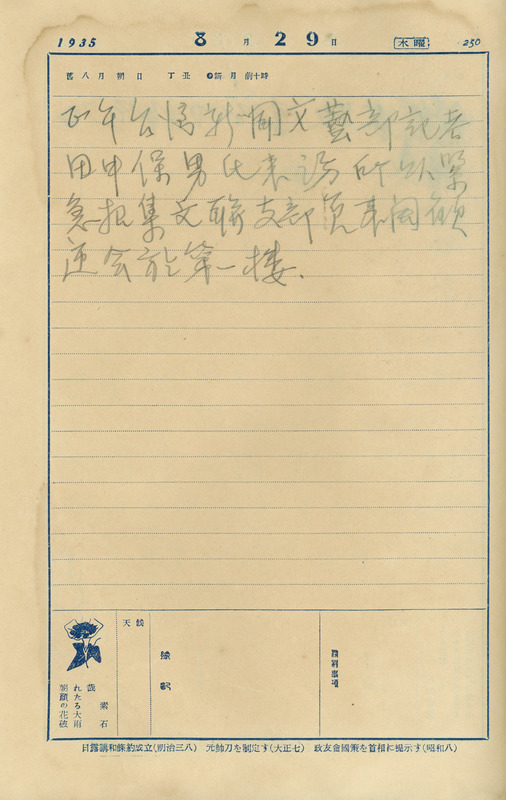 1935 8月29日 木曜 250
舊八月朔日 丁丑 ●新月前十時
正午台湾新聞文藝部記者
田中保男氏来訪所以緊
急招集文聯支部員本開顔
迎会於第一樓.
天候
豫記
朝顔の花破
れたる大雨
哉 素石
日露講和條約成立(明治三八) 元帥刀を制定す(大正七) 政友會國策を首相に提示す(昭和八)